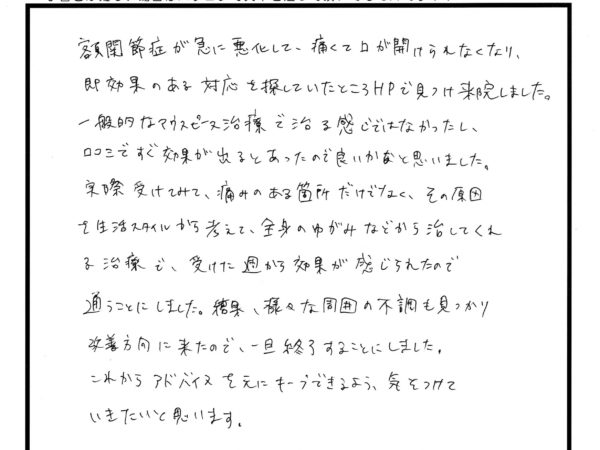 額関節症が急に悪化して、痛くて口が開けられなくなり、
即効果のある対応を探していたところHPで見つけ来院しました。
一般的なマウスピース治療で治る感じではなかったし、
口コミですぐ効果が出るとあったので良いかなと思いました。
実際受けてみて、痛みのある箇所だけでなく、その原因
を生活スタイルから考えて、全身のゆがみなどから治してくれ
る治療で、受けた週から効果が感じられたので
通うことにしました。結果、様々な周囲の不調も見つかり
改善方向に来たので、一旦終了することにしました。
これからアドバイスを元にキープできるよう、気をつけて
いきたいと思います。